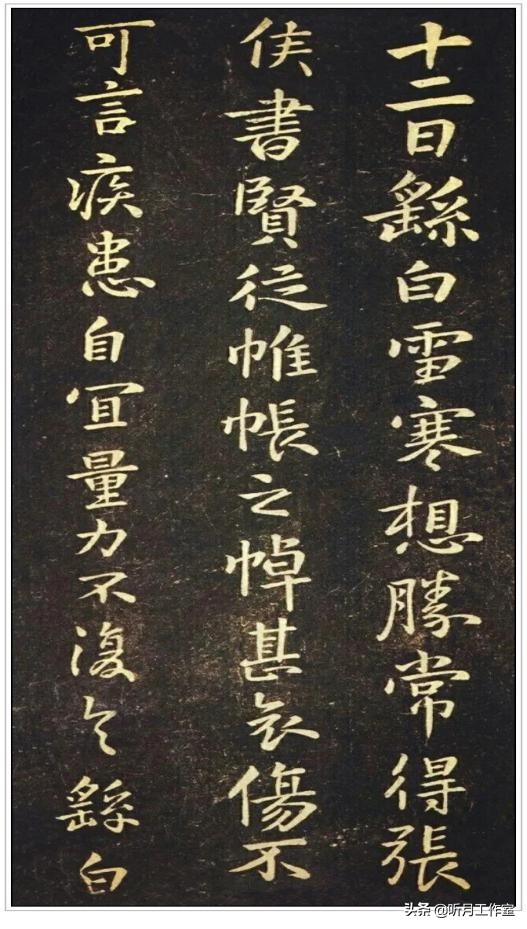 十二日繇白雪寒想勝常得張
侯書賢從帷帳之悼甚哀傷不
可言疾患自宜量力不復繇白
头条 @听月工作室